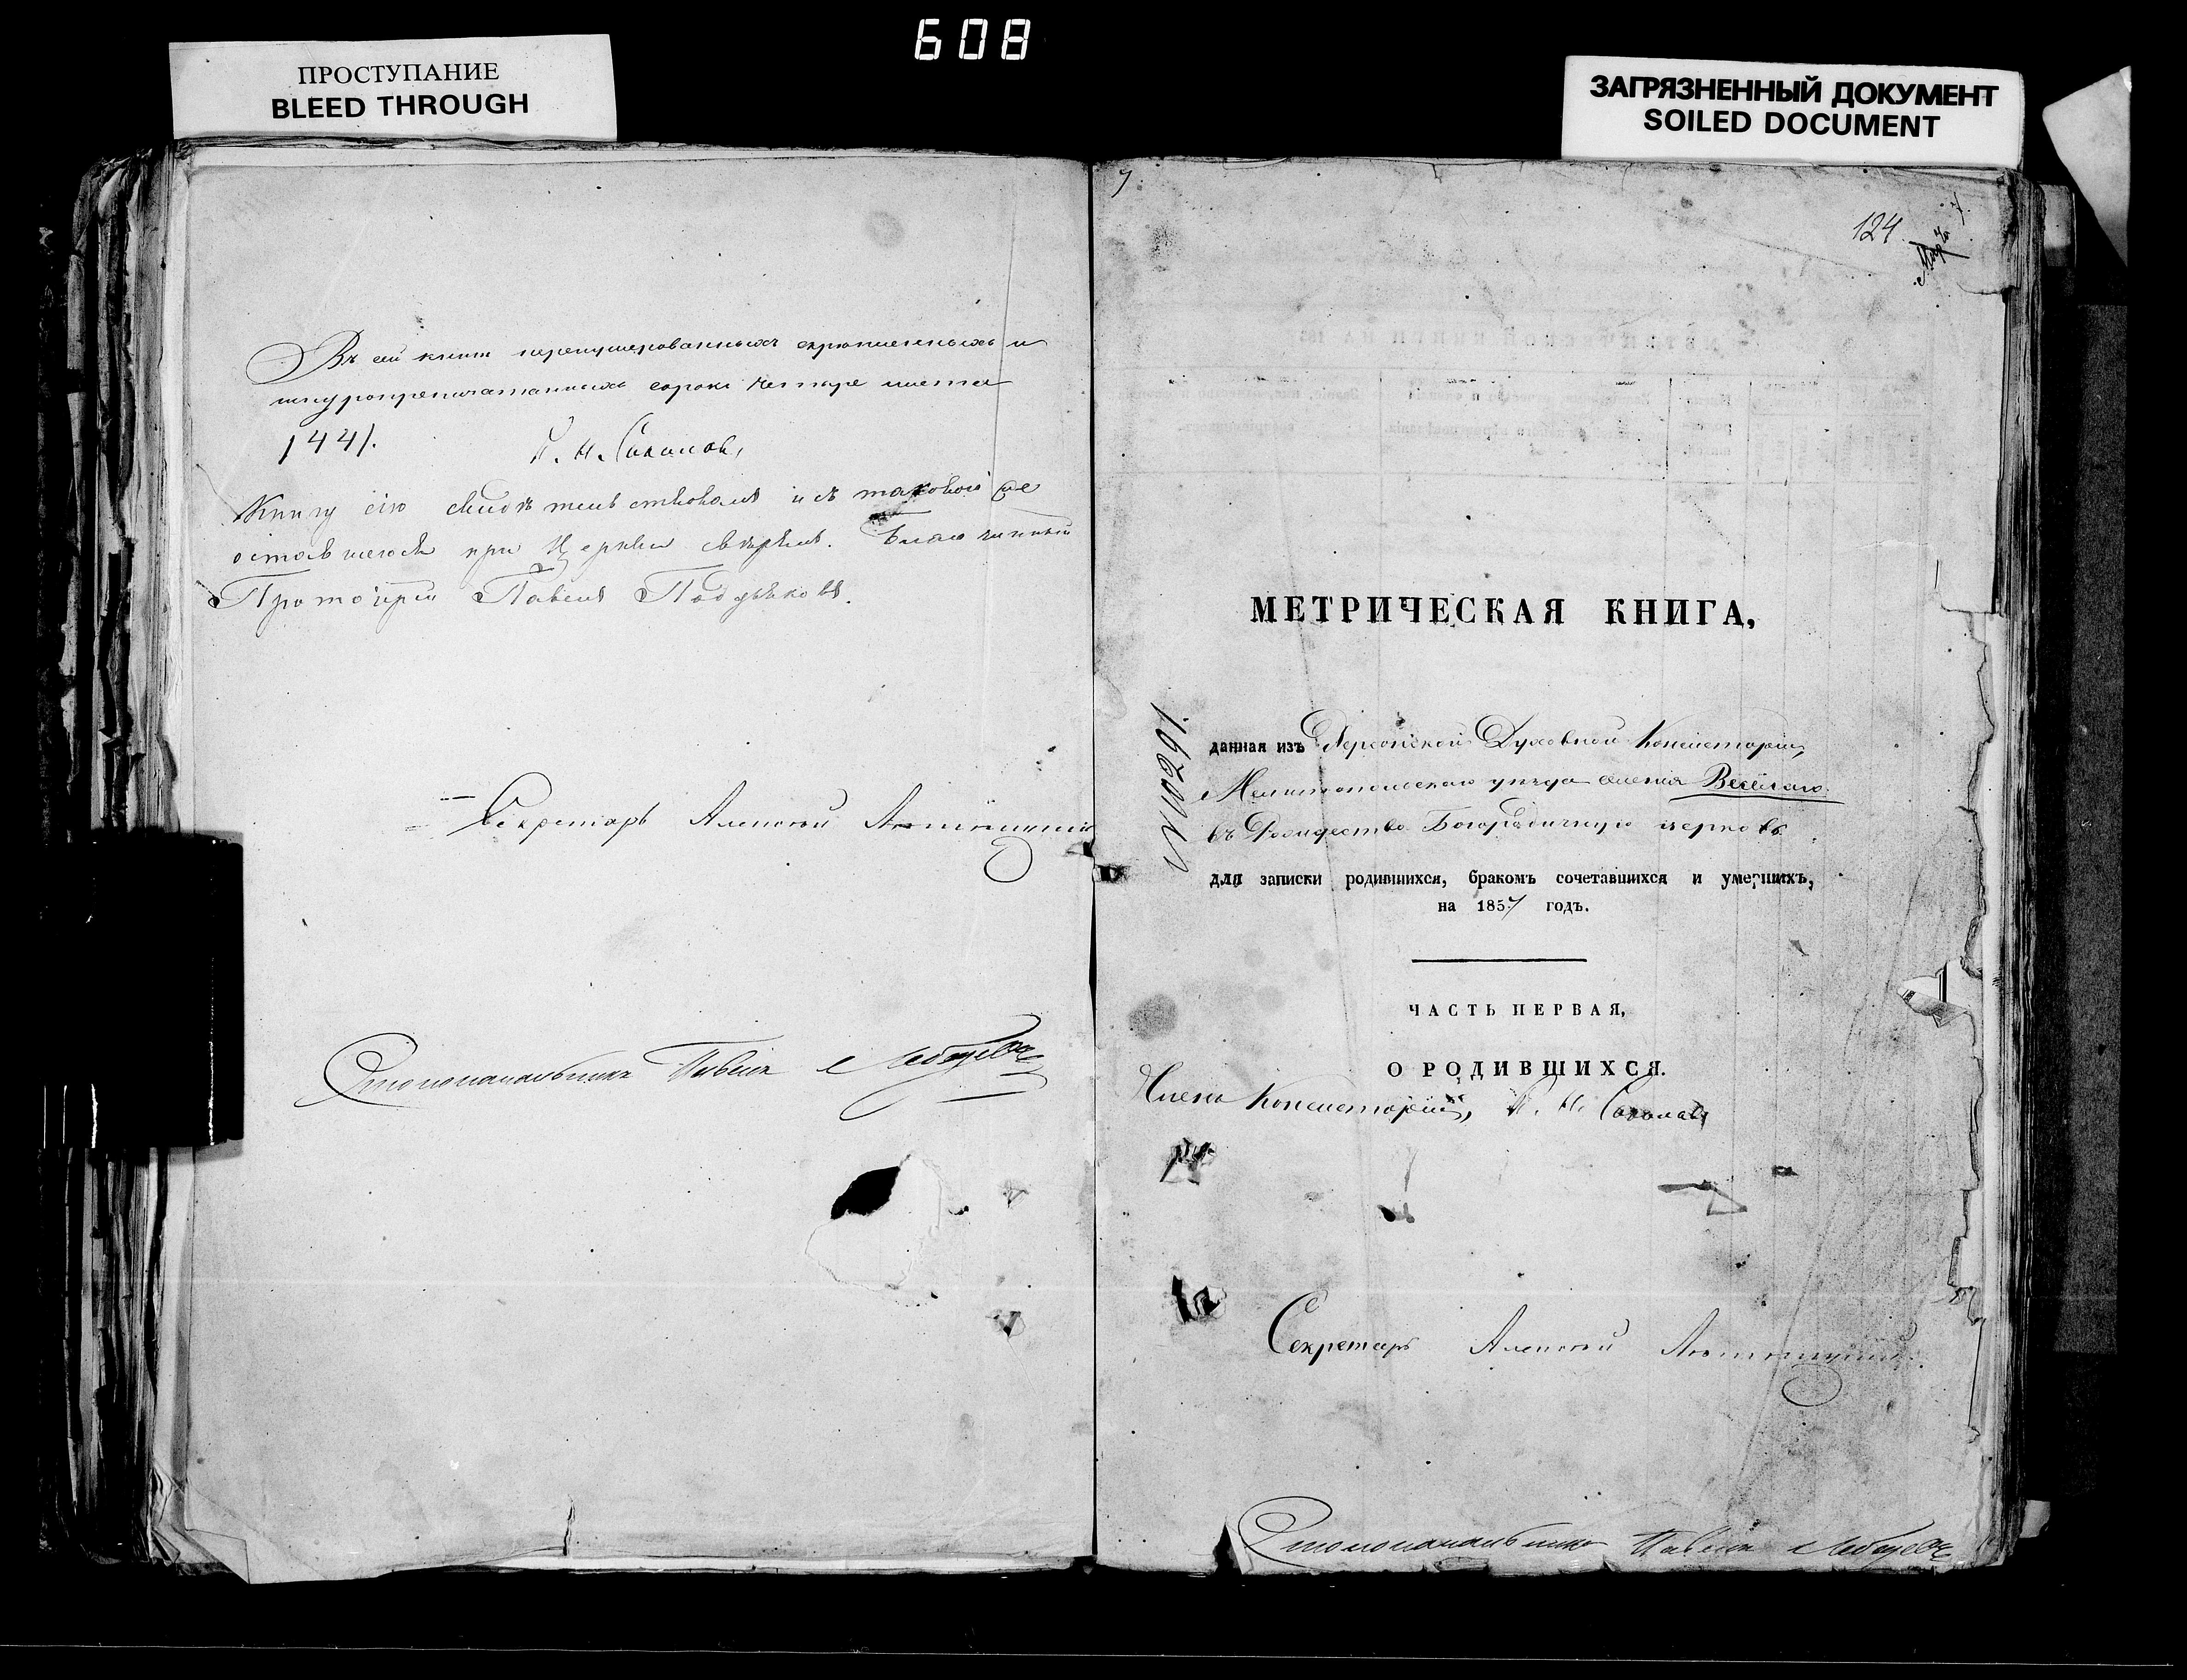 608
ПРОСТУПАНИЕ
BLEED THROUGH
ЗАГРЯЗНЕННЫЙ ДОКУМЕНТ
SOILED DOCUMENT
Въ сей книгѣ перенумерованныхъ скрѣпленныхъ и
шнуропрепечатанныхъ сорокъ четыре листа
/44/.
Книгу сію свидѣтельствовалъ и съ таковою же
оставшеюся при Церкви свѣрялъ. Благочинный
Протоіерей Павелъ
Секретарь Алексѣй
Столоначальникъ Павелъ Лебедевъ
7
124
МЕТРИЧЕСКАЯ КНИГА,
данная изъ Херсонской Духовной Консисторіи,
Мелитопольскаго уѣзда селенія Веселаго
въ Рождество Богородичную церковь
для записки родившихся, бракомъ сочетавшихся и умершихъ,
на 1857 годъ.
ЧАСТЬ ПЕРВАЯ,
О РОДИВШИХСЯ.
Членъ Консисторіи,
Секретарь Алексѣй
Столоначальникъ Павелъ Лебедевъ